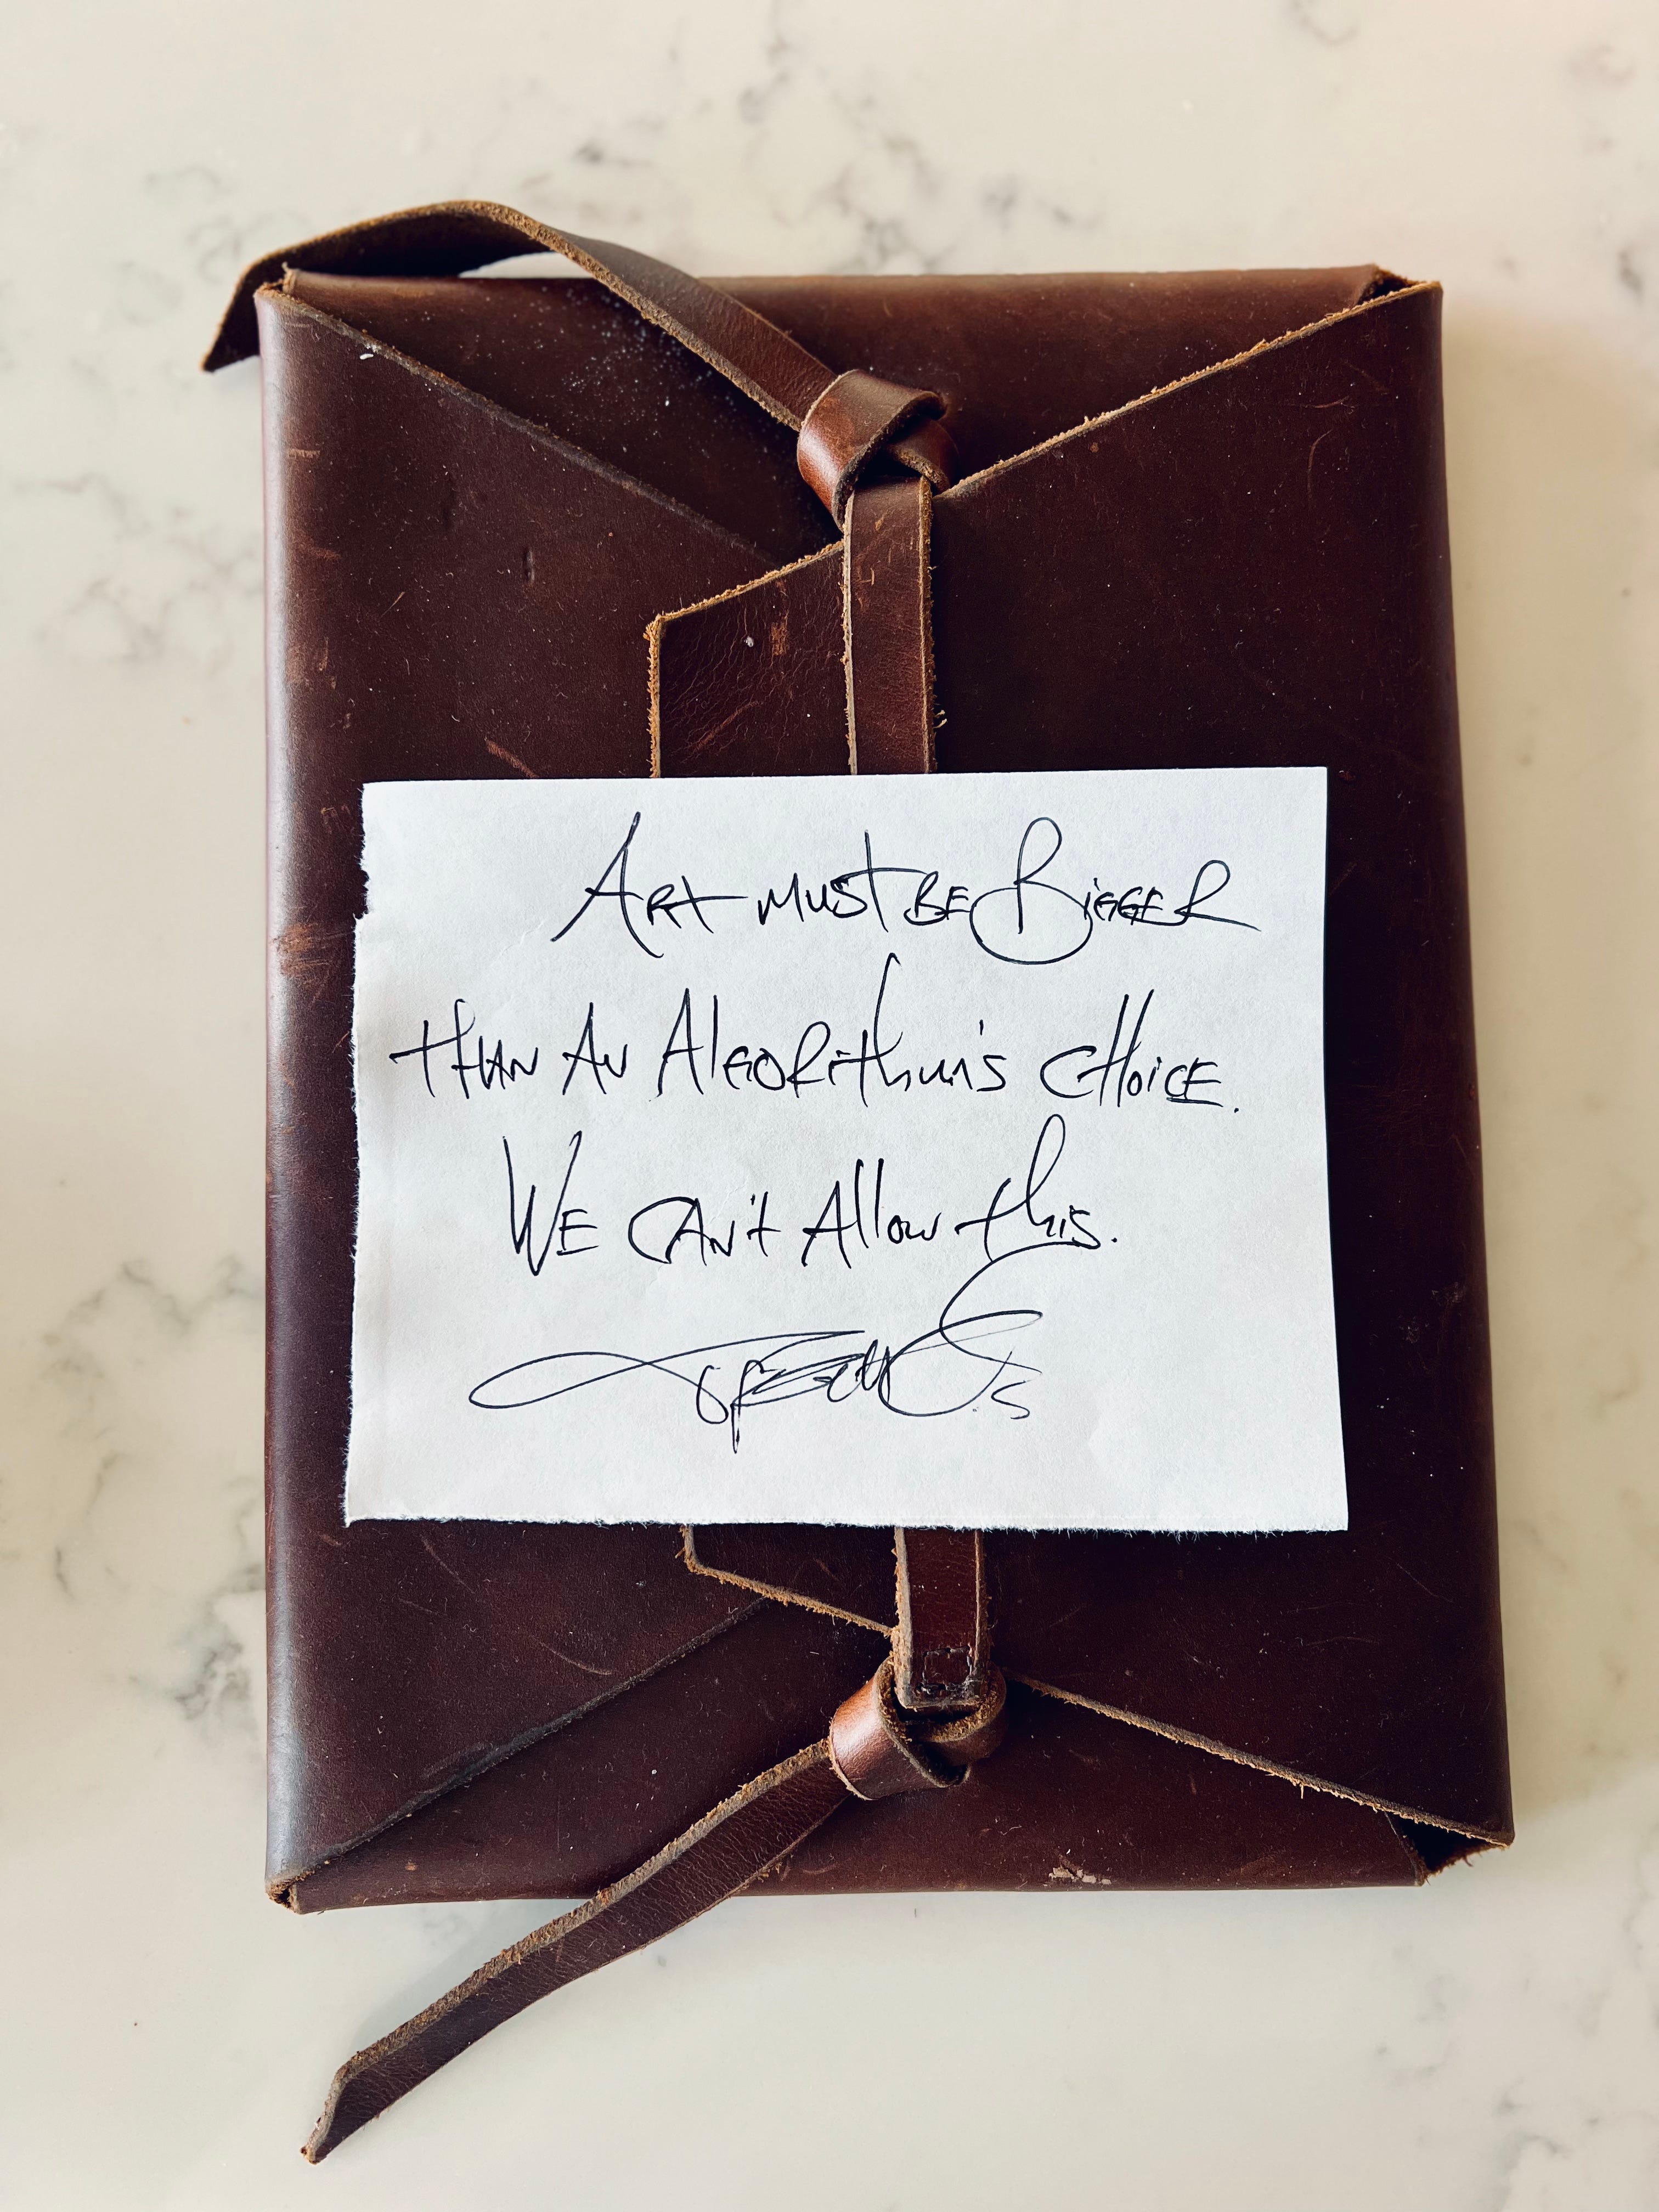 Art must be Bigger
than An Algorithm's choice.
We can't Allow this.